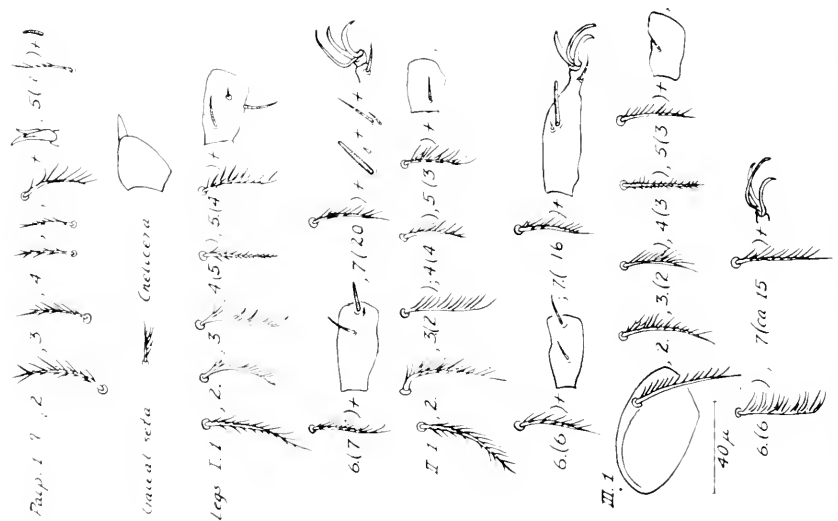 Palp. 1 ?, 2, 3, 4, + . 5( )+
Caudal seta Chelicera
Legs I. 1, 2. , 3, 4(5), 5(4)+
6.(7)+, 7(20)+ + +
II 1, 2. , 3(2); 4(4), 5(3)+
6.(6)+; 7.(16)+
III. 1 2. , 3.(2), 4(3), 5(3)+
40 µ
6.(6), 7(ca 15)+